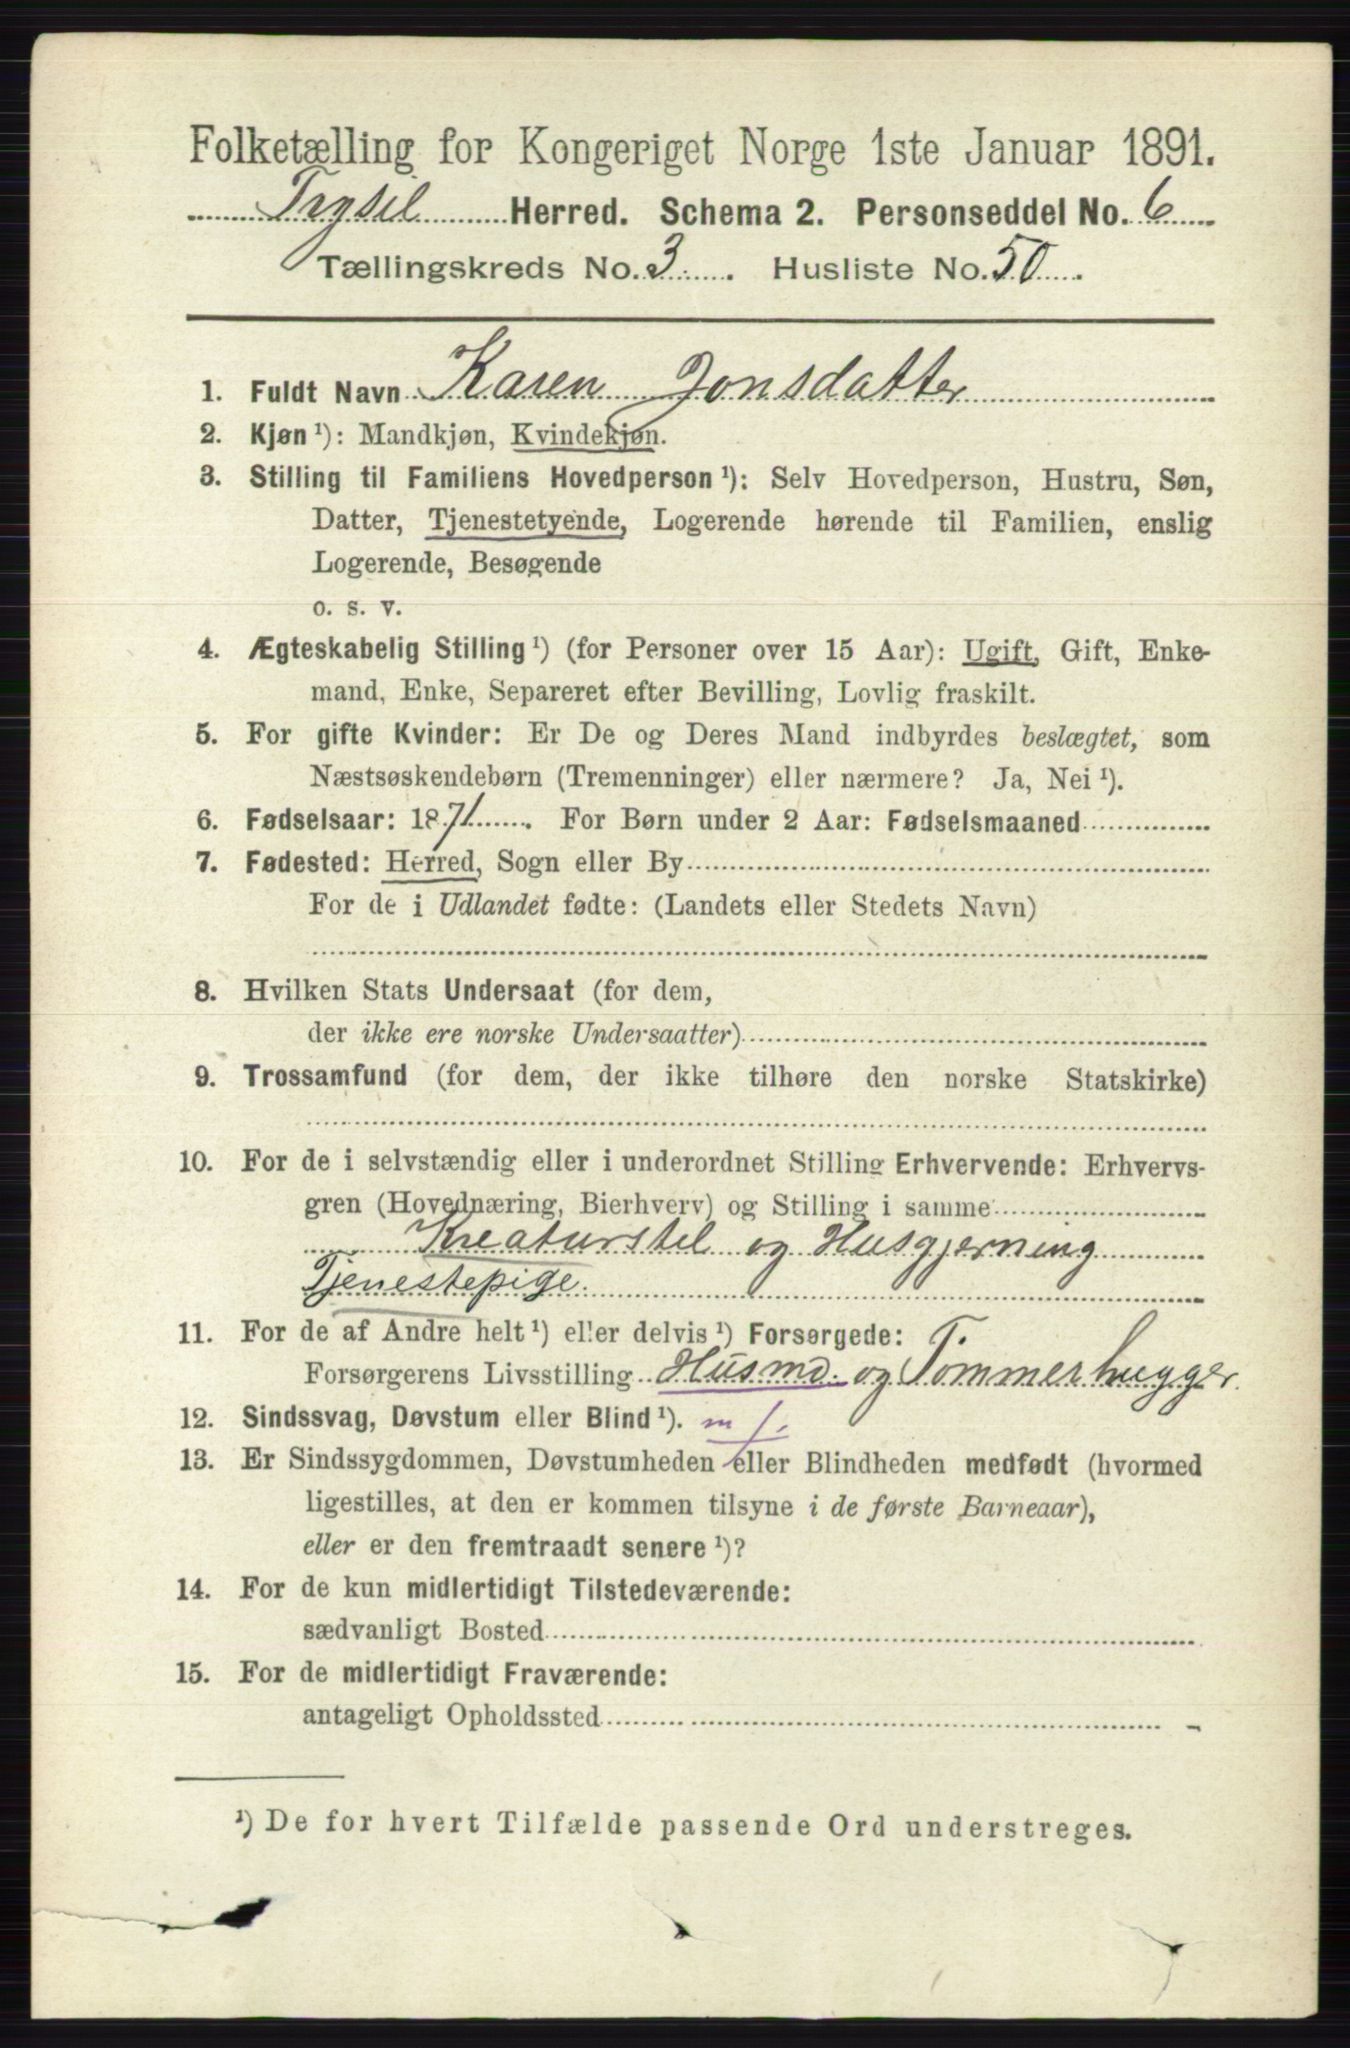 Folketælling for Kongeriget Norge 1ste Januar 1891.
Trysil Herred. Schema 2. Personseddel No. 6
Tællingskreds No. 3. Husliste No. 50.
1. Fuldt Navn Karen Jonsdatter
2. Kjøn ¹): Mandkjøn, Kvindekjøn.
3. Stilling til Familiens Hovedperson ¹): Selv Hovedperson, Hustru, Søn,
Datter, Tjenestetyende, Logerende hørende til Familien, enslig
Logerende, Besøgende
o. s. v.
4. Ægteskabelig Stilling ¹) (for Personer over 15 Aar): Ugift, Gift, Enke-
mand, Enke, Separeret efter Bevilling, Lovlig fraskilt.
5. For gifte Kvinder: Er De og Deres Mand indbyrdes beslægtet, som
Næstsøskendebørn (Tremenninger) eller nærmere? Ja, Nei ¹).
6. Fødselsaar: 1871. For Børn under 2 Aar: Fødselsmaaned
7. Fødested: Herred, Sogn eller By
For de i Udlandet fødte: (Landets eller Stedets Navn)
8. Hvilken Stats Undersaat (for dem,
der ikke ere norske Undersaatter)
9. Trossamfund (for dem, der ikke tilhøre den norske Statskirke)
10. For de i selvstændig eller i underordnet Stilling Erhvervende: Erhvervs-
gren (Hovednæring, Bierhverv) og Stilling i samme
Kreaturstel og Husgjerning
Tjenestepige.
11. For de af Andre helt ¹) eller delvis ¹) Forsørgede:
Forsørgerens Livsstilling Husmd. og Tømmerhugger.
12. Sindssvag, Døvstum eller Blind ¹).
13. Er Sindssygdommen, Døvstumheden eller Blindheden medfødt (hvormed
ligestilles, at den er kommen tilsyne i de første Barneaar),
eller er den fremtraadt senere ¹)?
14. For de kun midlertidigt Tilstedeværende:
sædvanligt Bosted
15. For de midlertidigt Fraværende:
antageligt Opholdssted
¹) De for hvert Tilfælde passende Ord understreges.